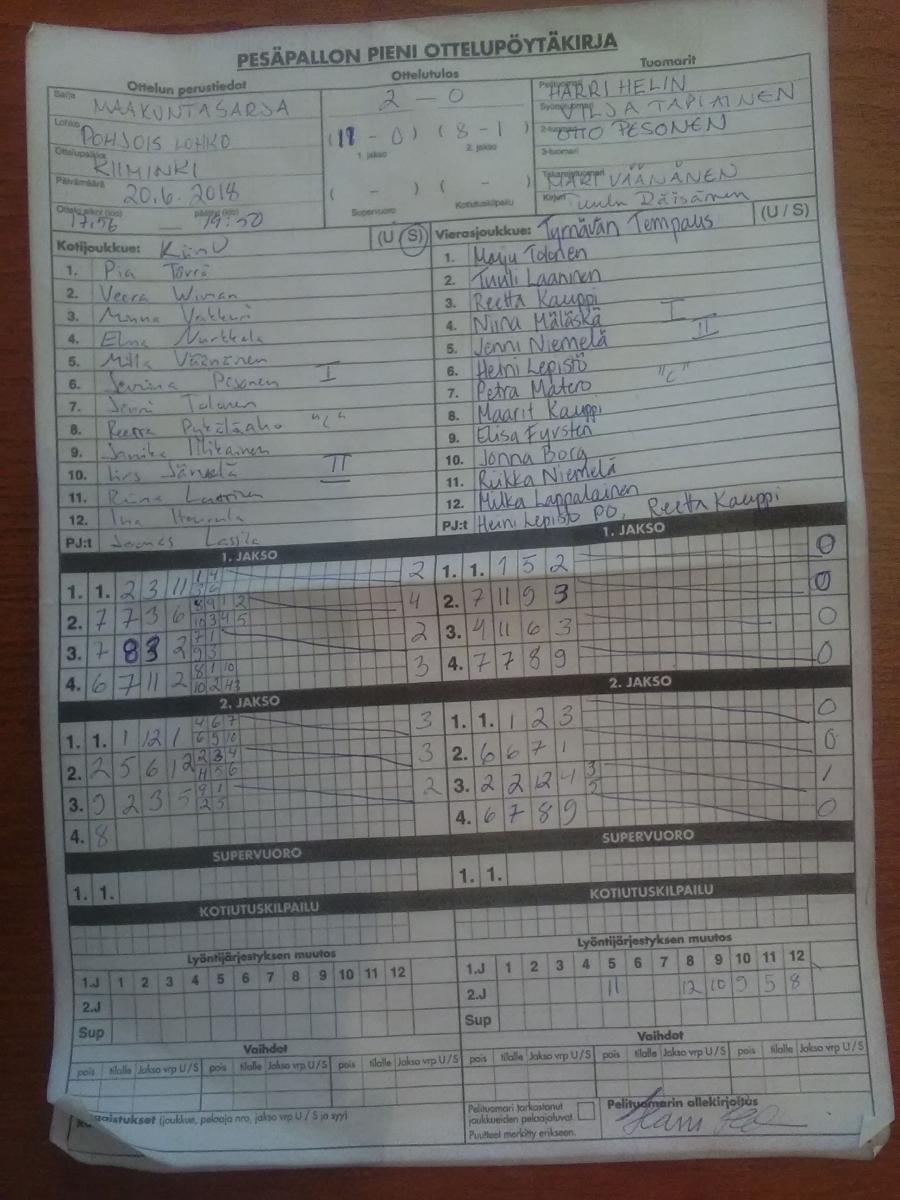 PESÄPALLON PIENI OTTELUPÖYTÄKIRJA
Ottelun perustiedot
Ottelutulos
Tuomarit
Sarja MAAKUNTASARJA
2 - 0
Pelituomari HARRI HELIN
Lohko POHJOISLOHKO
(11 - 0) (8 - 1)
1. jakso 2. jakso
Syöttötuomari VILJA TAPIAINEN
2-tuomari OTTO PESONEN
Ottelupaikka KIIMINKI
3-tuomari
Päivämäärä 20.6.2018
( - ) ( - )
Supervuoro Kotiutuskilpailu
Takarajatuomari MARI VÄÄNÄNEN
Ottelu alkoi (klo) 17:56 — päättyi (klo) 19:50
Kirjuri Tuulu Räisänen
Kotijoukkue: KiinU (U / S)
1. Pia Törrö
2. Veera Wiman
3. Minna Vakkuri
4. Elma Nurkkala
5. Milla Väänänen
6. Pesonen I
7. Jenni Tolonen
8. Reetta Pykäläaho "C"
9. Janika
10. Iiris Järvelä II
11. Riina
12. Iina
PJ:t Joonas Lassila
Vierasjoukkue: Tyrnävän Tempaus (U / S)
1. Maiju Tolonen
2. Tuuli Laaninen
3. Reetta Kauppi
4. Niina Mäläskä I
5. Jenni Niemelä II
6. Heini Lepistö
7. Petra Matero "C"
8. Maarit Kauppi
9. Elisa Fyrsten
10. Jonna Borg
11. Riikka Niemelä
12. Milka Lappalainen
PJ:t Heini Lepistö PD, Reetta Kauppi
1. JAKSO
1. 1. 2 3 11 1 4 3 6 2
2. 7 7 3 6 8 9 1 2 10 3 4 5 4
3. 7 8 3 2 7 1 9 3 2
4. 6 7 11 2 8 1 10 10 2 3
1. JAKSO
1. 1. 1 5 2 0
2. 7 11 9 3 0
3. 4 11 6 3 0
4. 7 7 8 9 0
2. JAKSO
1. 1. 1 12 1 4 6 7 6 9 10 3
2. 2 5 6 12 2 3 4 4 5 6 3
3. 9 2 3 5 9 1 2 5 2
4. 8
2. JAKSO
1. 1. 1 2 3 0
2. 6 6 7 1 0
3. 2 2 12 4 3 5 1
4. 6 7 8 9 0
SUPERVUORO
1. 1.
SUPERVUORO
1. 1.
KOTIUTUSKILPAILU
KOTIUTUSKILPAILU
Lyöntijärjestyksen muutos
1.J 1 2 3 4 5 6 7 8 9 10 11 12
2.J
Sup
Lyöntijärjestyksen muutos
1.J 1 2 3 4 5 6 7 8 9 10 11 12
2.J 11 12 10 9 5 8
Sup
Vaihdot
pois tilalle Jakso vrp U / S pois tilalle Jakso vrp U / S pois tilalle Jakso vrp U / S
Vaihdot
pois tilalle Jakso vrp U / S pois tilalle Jakso vrp U / S pois tilalle Jakso vrp U / S
(joukkue, pelaaja nro, jakso vrp U / S ja syy)
Pelituomari tarkastanut
joukkueiden pelaajaluvat.
Puutteet merkitty erikseen.
Pelituomarin allekirjoitus